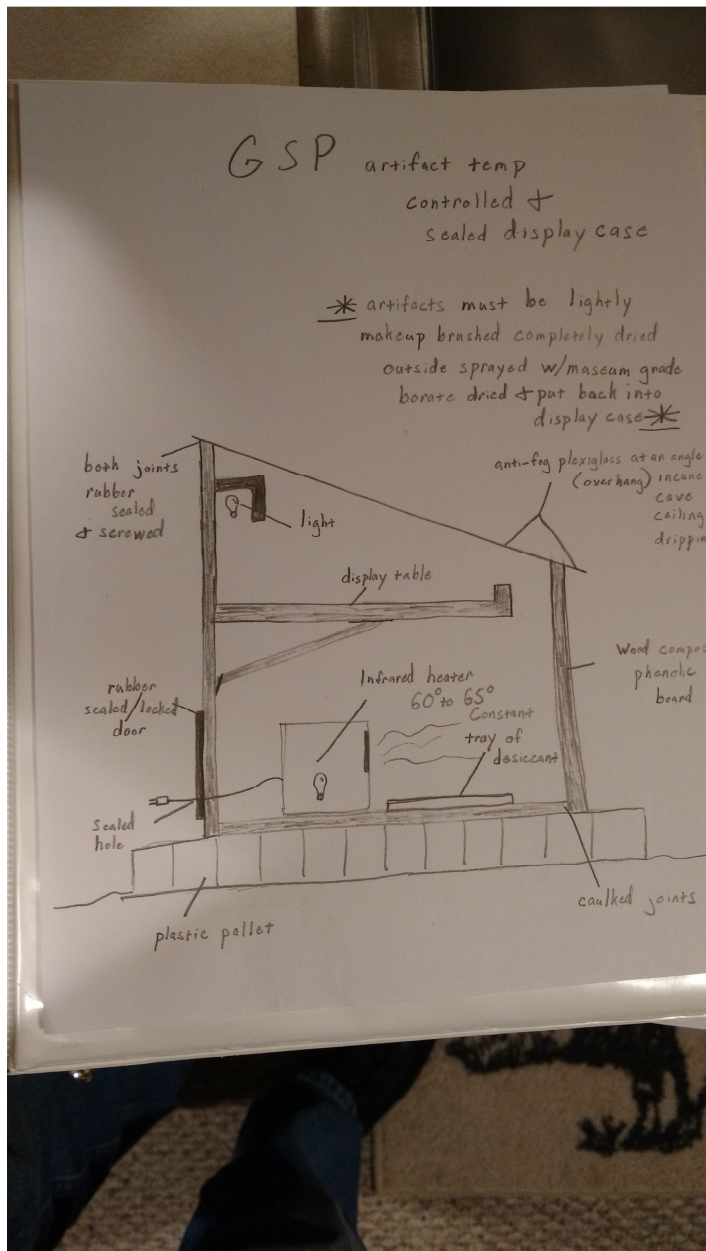 GSP artifact temp
controlled &
sealed display case
* artifacts must be lightly
makeup brushed completely dried
outside sprayed w/museum grade
borate dried & put back into
display case *
both joints
rubber
sealed
& screwed
light
anti-fog plexiglass at an angle
(overhang) incase
cave
ceiling
drippin
display table
Wood compos
phenolic
board
rubber
sealed/locked
door
Infrared heater
60° to 65°
Constant
tray of
desiccant
sealed
hole
caulked joints
plastic pallet